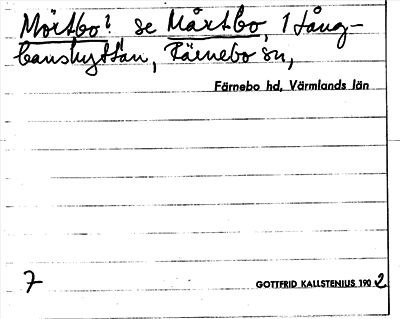 Mörtbo? se Mårtbo, 1 tång-
banshyttan, Färnebo sn,
Färnebo hd, Värmlands län
7
GOTTFRID KALLSTENIUS 1902